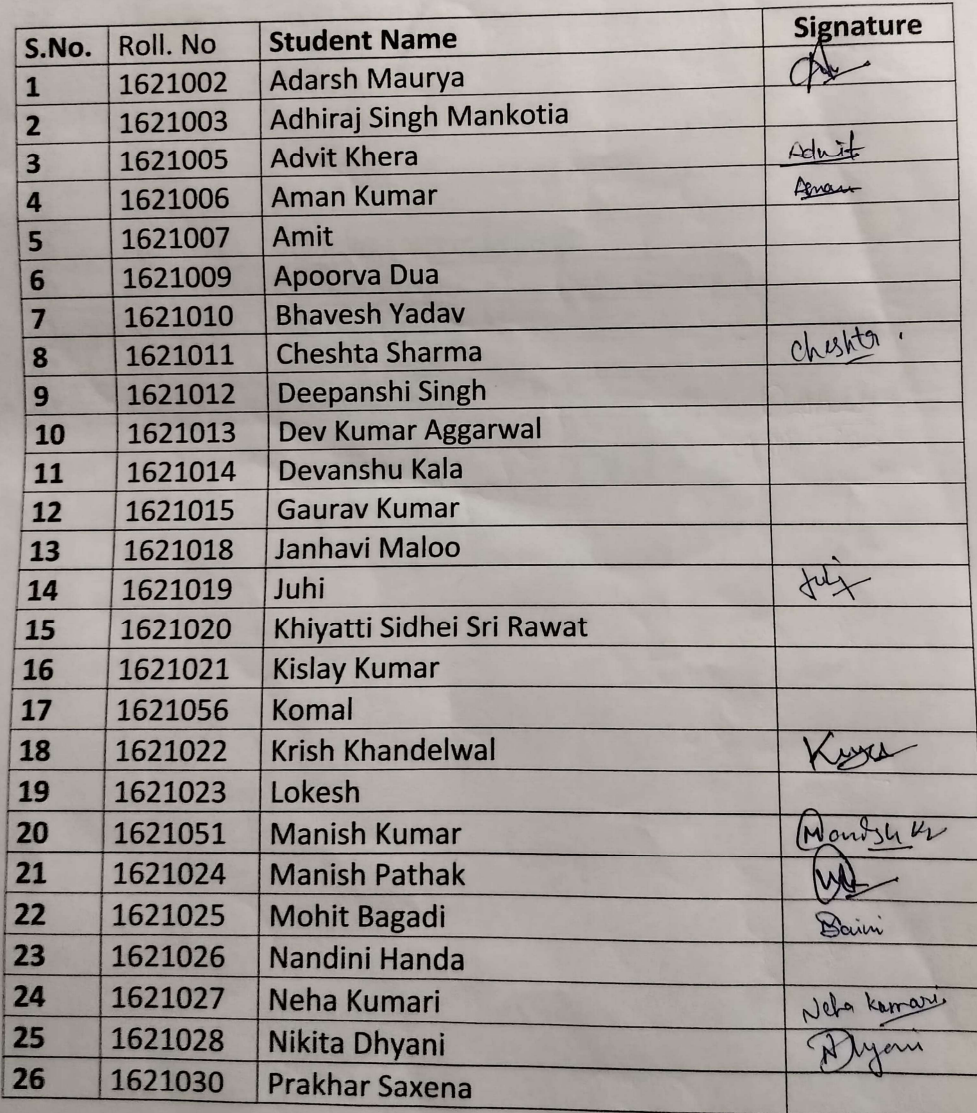 S.No. Roll. No Student Name Signature
1 1621002 Adarsh Maurya
2 1621003 Adhiraj Singh Mankotia
3 1621005 Advit Khera Advit
4 1621006 Aman Kumar Aman
5 1621007 Amit
6 1621009 Apoorva Dua
7 1621010 Bhavesh Yadav
8 1621011 Cheshta Sharma Cheshta
9 1621012 Deepanshi Singh
10 1621013 Dev Kumar Aggarwal
11 1621014 Devanshu Kala
12 1621015 Gaurav Kumar
13 1621018 Janhavi Maloo
14 1621019 Juhi
15 1621020 Khiyatti Sidhei Sri Rawat
16 1621021 Kislay Kumar
17 1621056 Komal
18 1621022 Krish Khandelwal
19 1621023 Lokesh
20 1621051 Manish Kumar Manish Kr
21 1621024 Manish Pathak
22 1621025 Mohit Bagadi
23 1621026 Nandini Handa
24 1621027 Neha Kumari Neha Kumari
25 1621028 Nikita Dhyani Dhyani
26 1621030 Prakhar Saxena